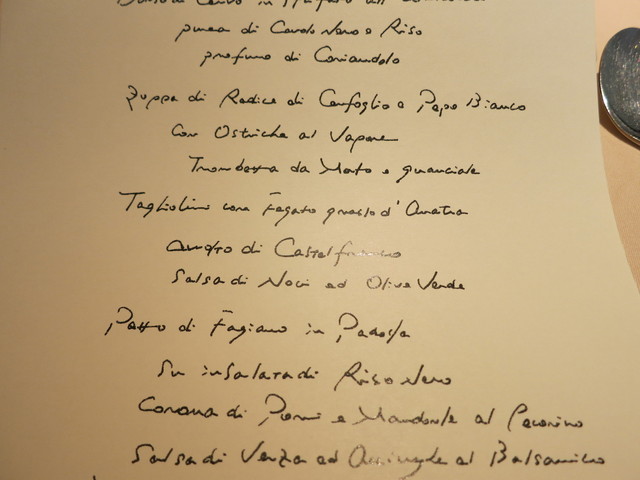 purea di Cavolo Nero e Riso
profumo di Coriandolo
Zuppa di Radice di Cerfoglio e Pepe Bianco
con Ostriche al Vapore
Trombetta da Morto e guanciale
Tagliolini con Fegato grasso d'Anatra
di Castelfranco
Salsa di Noci ed Olive Verde
Petto di Fagiano in Padella
Su insalata di Riso Nero
Corona di Porri e Mandorle al Pecorino
Salsa di Verza ed al Balsamico